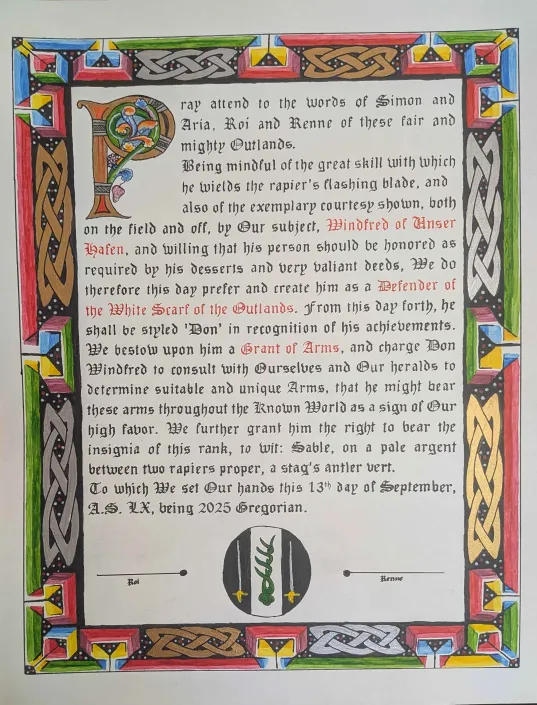 Pray attend to the words of Simon and
Aria, Roi and Renne of these fair and
mighty Outlands.
Being mindful of the great skill with which
he wields the rapier's flashing blade, and
also of the exemplary courtesy shown, both
on the field and off, by Our subject, Windfred of Unser
Hafen, and willing that his person should be honored as
required by his desserts and very valiant deeds, We do
therefore this day prefer and create him as a Defender of
the White Scarf of the Outlands. From this day forth, he
shall be styled 'Don' in recognition of his achievements.
We bestow upon him a Grant of Arms, and charge Don
Windfred to consult with Ourselves and Our heralds to
determine suitable and unique Arms, that he might bear
these arms throughout the Known World as a sign of Our
high favor. We further grant him the right to bear the
insignia of this rank, to wit: Sable, on a pale argent
between two rapiers proper, a stag's antler vert.
To which We set Our hands this 13th day of September,
A.S. LX, being 2025 Gregorian.
Roi
Renne